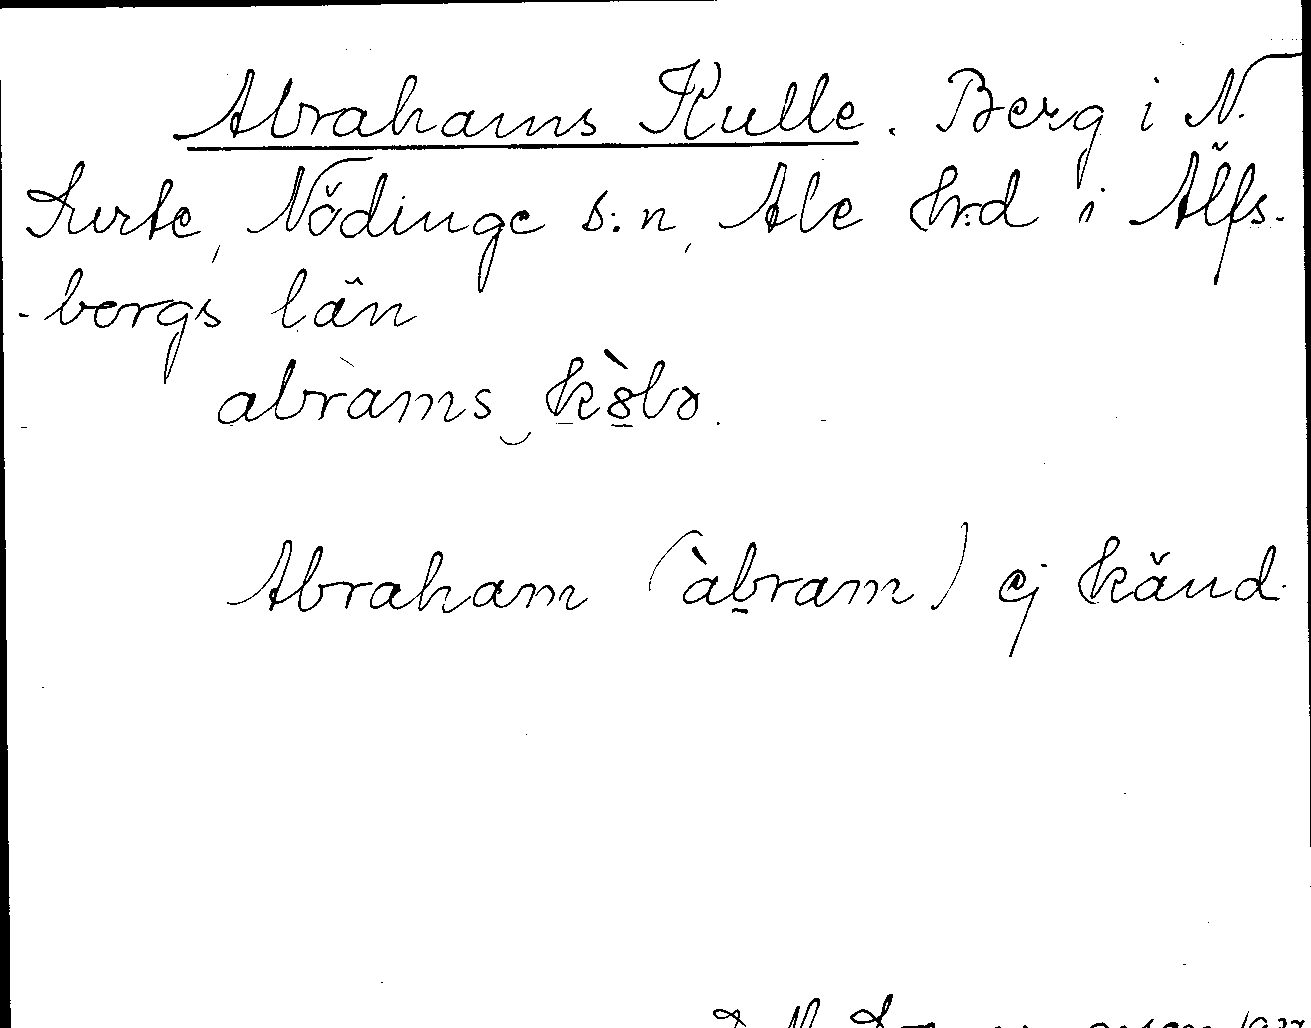 Abrahams Kulle. Berg i N.
Surte, Nödinge s:n, Ale hrd i Älfs-
-borgs län
abrams kòlə.
Abraham (àbram) ej känd.